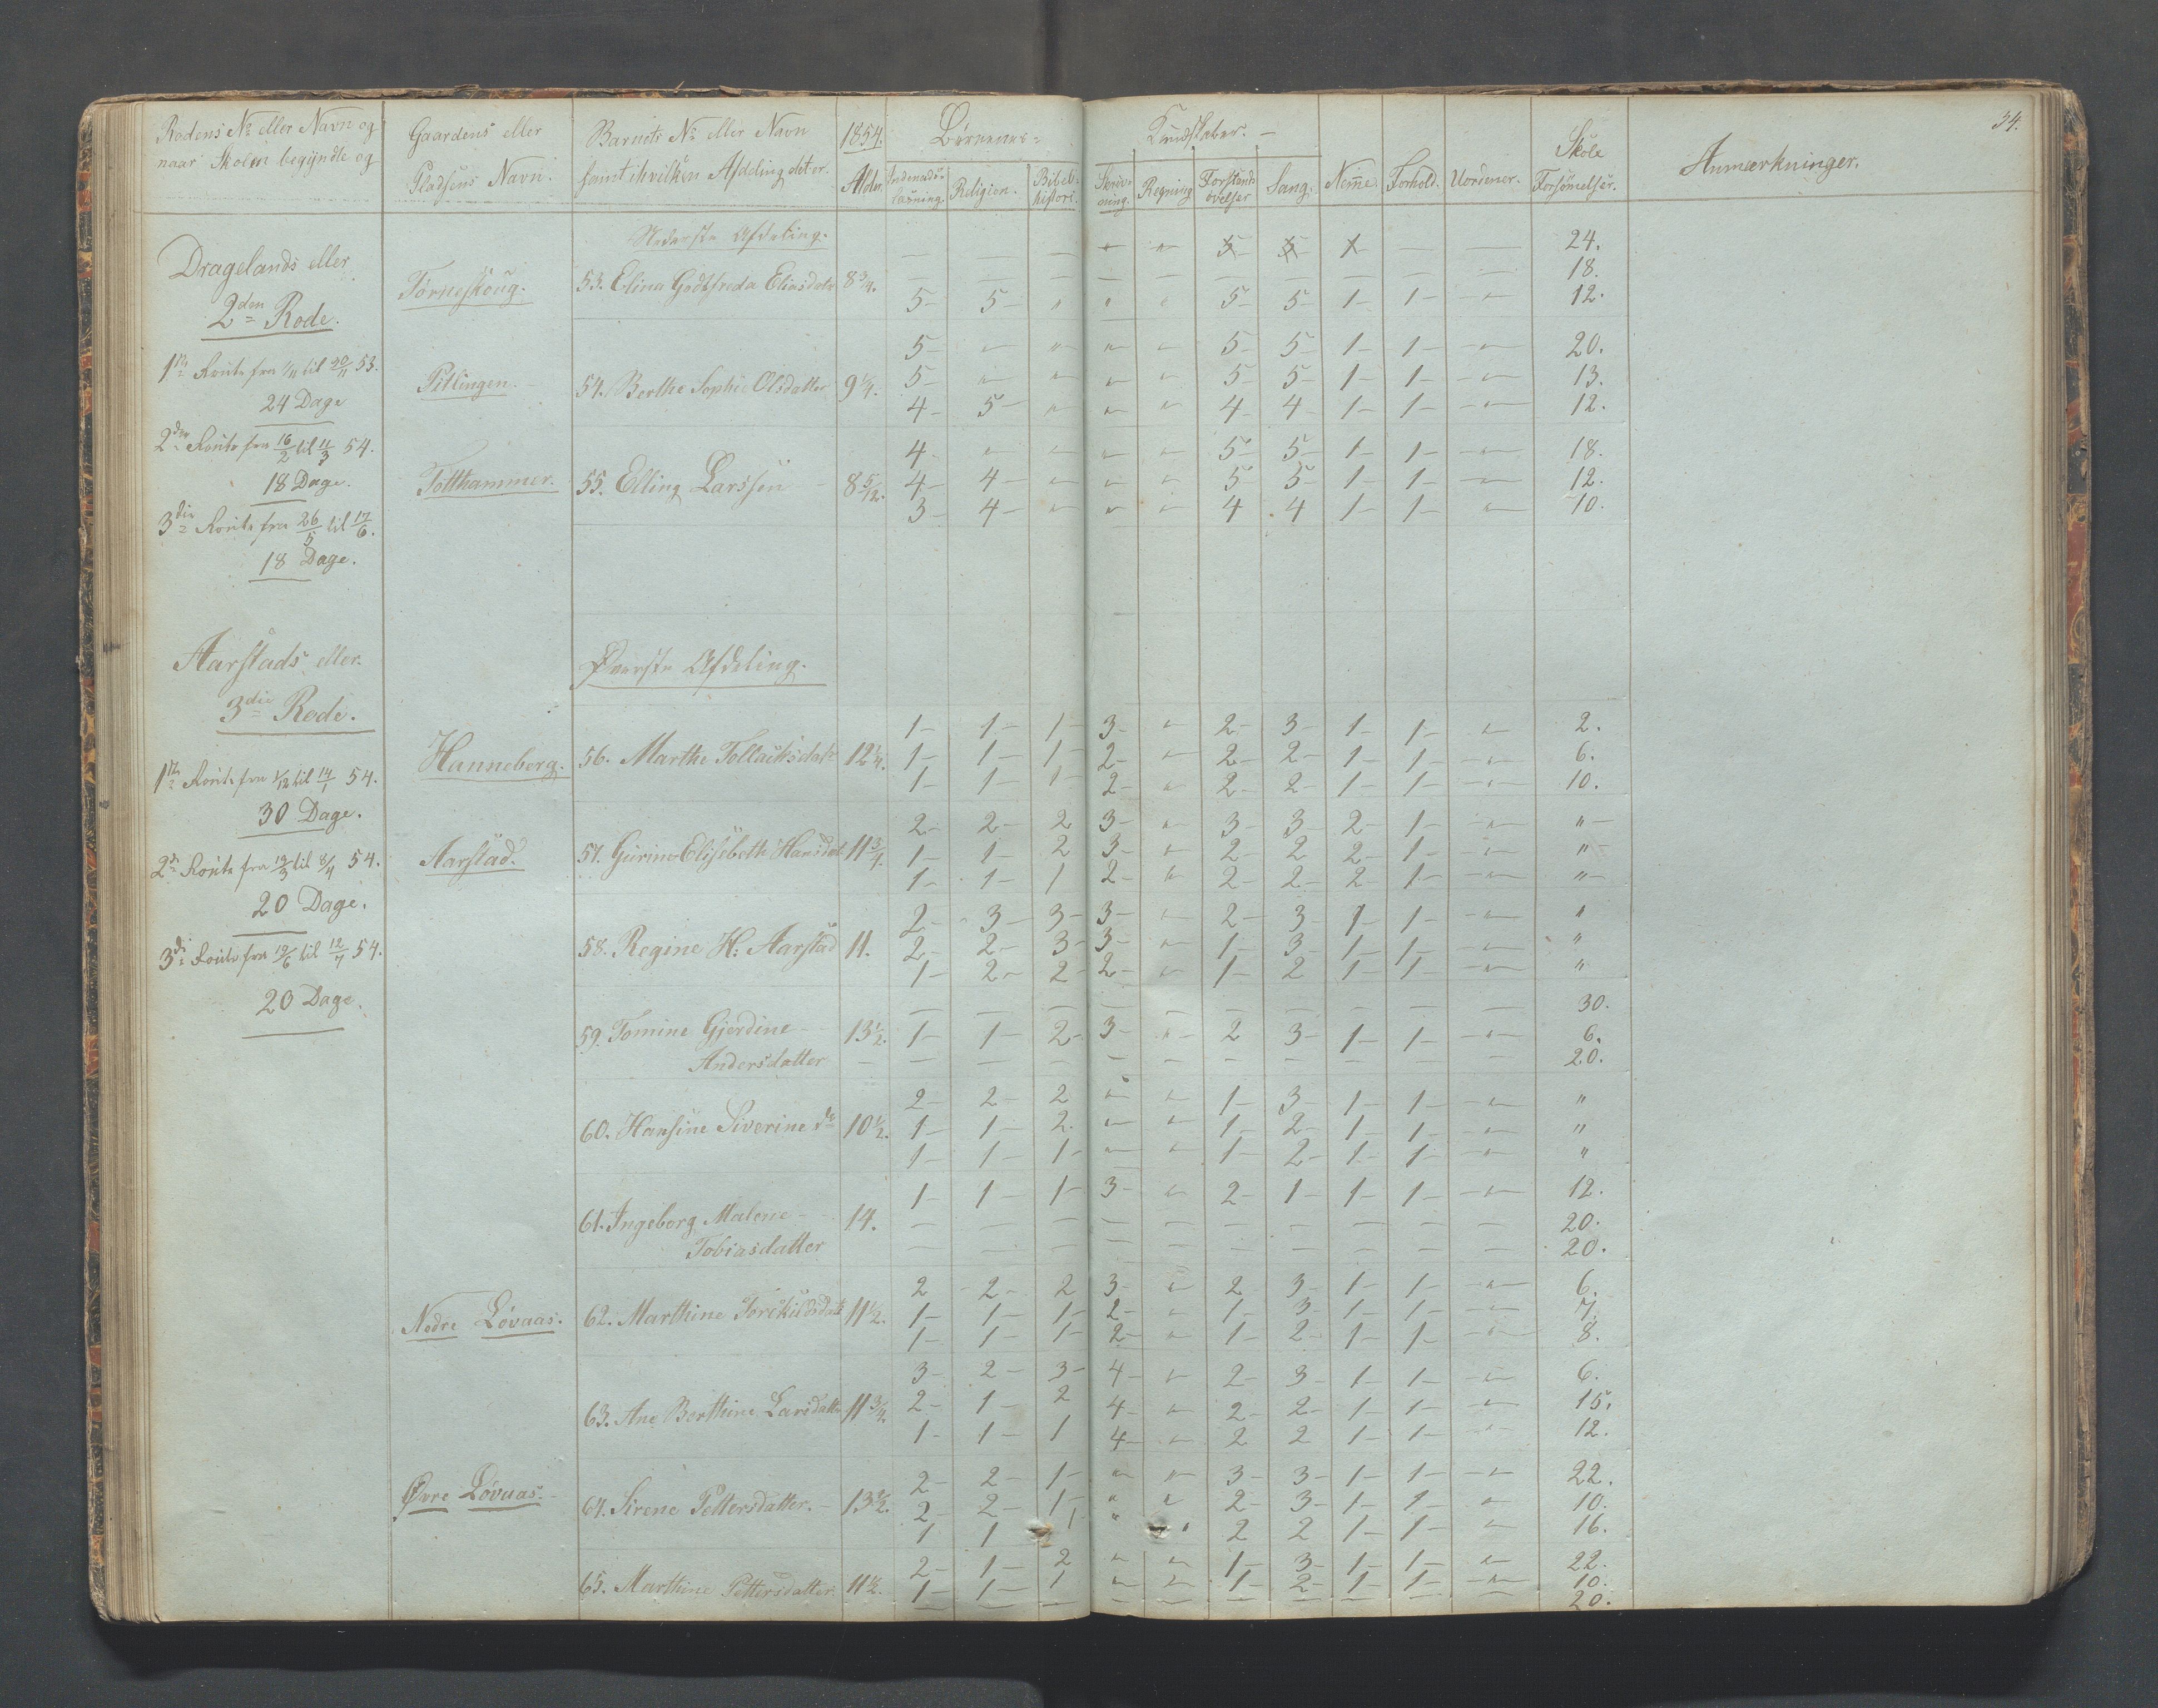 34.
Rodens No eller Navn og
naar Skolen begyndte og
Gaardens eller
Pladsens Navn.
Barnets No eller Navn
samt ihvilken Afdeling det er.
1854.
Alder.
Børnenes
Kundskaber. –
Indenads-
læsning.
Religion.
Bibel-
histori.
Skriv-
ning.
Regning
Forstands
øvelser
Sang.
Nemme.
Forhold.
Uordener.
Skole
Forsømelser.
Anmærkninger.
Nederste Afdeling.
Dragelands eller
2den Rode.
1ste Route fra 1/11 til 30/11 53.
24 Dage
2den Route fra 16/2 til 11/3 54.
18 Dage.
3die Route fra 26/5 til 17/6.
18 Dage.
Tørneskoug.
53. Elina Godtfreda Eliasdatr 8 3/4.
– – – " " 5 5 1 – – 24.
– – – – – – – – – – 18.
5 – 5 – " " " 5 – 5 – 1 – 1 – – " – 12.
Pitlingen.
54. Berthe Sophie Olsdatter 9 1/4.
5 – " " " " 5 – 5 – 1 – 1 – – " – 20.
5 – " " " " 5 – 5 – 1 – 1 – – " – 13.
4 – 5 – " " " 4 – 4 – 1 – 1 – – " – 12.
Totthammer.
55. Elling Larssen – 8 5/12.
4 – " " " " 5 – 5 – 1 – 1 – – " – 18.
4 – 4 – " " " 5 – 5 – 1 – 1 – – " – 12.
3 – 4 – " " " 4 4 1 – 1 – " – 10.
Aarstads eller
3die Rode.
1ste Route fra 1/12 til 14/1 54.
30 Dage.
2de Route fra 19/3 til 8/4 54.
20 Dage.
3die Route fra 19/6 til 12/7 54.
20 Dage.
Øverste Afdeling.
Hanneberg.
56. Marthe Tollachsdatr 12 1/4.
1 – 1 – 1 – 3 – " 2 – 3 – 1 – 1 – " 2.
1 – 1 – 1 – 2 – " 2 – 2 – 1 – 1 – – " – 6.
1 – 1 – 1 – 2 – " 2 – 2 – 1 – 1 – – " – 10.
Aarstad.
57. Gurine Elisebeth Hansdat 11 3/4.
2 – 2 – 2 3 – " 3 – 3 2 – 1 – – " – " –
1 – 1 – 2 3 – " 2 – 2 2 – 1 – – " – " –
1 – 1 – 1 2 – " 2 – 2 – 2 – 1 – – " – " –
58. Regine H: Aarstad 11.
2 – 3 – 3 – 3 – " 2 – 3 – 1 – 1 – – " – "
2 – 2 – 3 – 3 – " 1 – 3 – 1 – 1 – – " – "
1 – 2 – 2 – 2 – " 1 – 2 1 – 1 – – " – "
59. Tomine Gjerdine – 13 1/2.
Andersdatter
– – – – – – – – – – 30.
1 – 1 – 2 – 3 – " 2 3 – 1 – 1 – – " – 6.
– – – – – – – – – – 20.
60. Hansine Siverine do 10 1/2.
2 – 2 – 2 " " 1 – 3 – 1 – 1 – – " – "
1 – 1 – 2. " " 1 – 2 – 1 – 1 – – " – "
1 – 1 – 1 – " " 1 – 2 – 1 – 1 – – " – "
61. Ingeborg Malene – 14.
Tobiasdatter
1 – 1 – 1 – 3 – " 2 – 1 – 1 – 1 – – " – 12.
– – – – – – – – – – 20.
– – – – – – – – – 20.
Nedre Løvaas.
62. Marthine Torkildsdatr 11 1/2.
2 2 – 2 3 – " 2 3 – 1 – 1 – – " – 6.
1 – 1 – 1 – 2 – " 1 – 3 – 1 – 1 – – " – 7.
1 – 1 – 1 – 2 – " 1 – 2 – 1 – 1 – – " – 8.
63. Ane Berthine Larsdatter 11 3/4.
3 – 2 – 3 – 4 – " 2 – 3 – 1 – 1 – – " – 6.
2 – 1 – 2 4 – " 2 – 2 – 1 – 1 – – " – 15.
1 – 1 – 1 4 – " 2 2 1 – 1 – – " – 12.
Øvre Løvaas. –
64. Sirene Pettersdatter. –
2 – 2 – 1 – " " 3 – 3 – 1 – 1 – – " – 22.
2 – 2 – 1 – " " 2 – 3 – 1 – 1 – " 10.
1 1 1 " " 2 2 1 – 1 – " 16.
65. Marthine Pettersdatter 11 1/2.
2 – 1 – 2 " " 1 – 3 – 1 – 1 – " 22.
1 – 1 – 1 " " 1 – 2 – 1 – 1 – – " – 10.
– – – – – – – – – – 20.